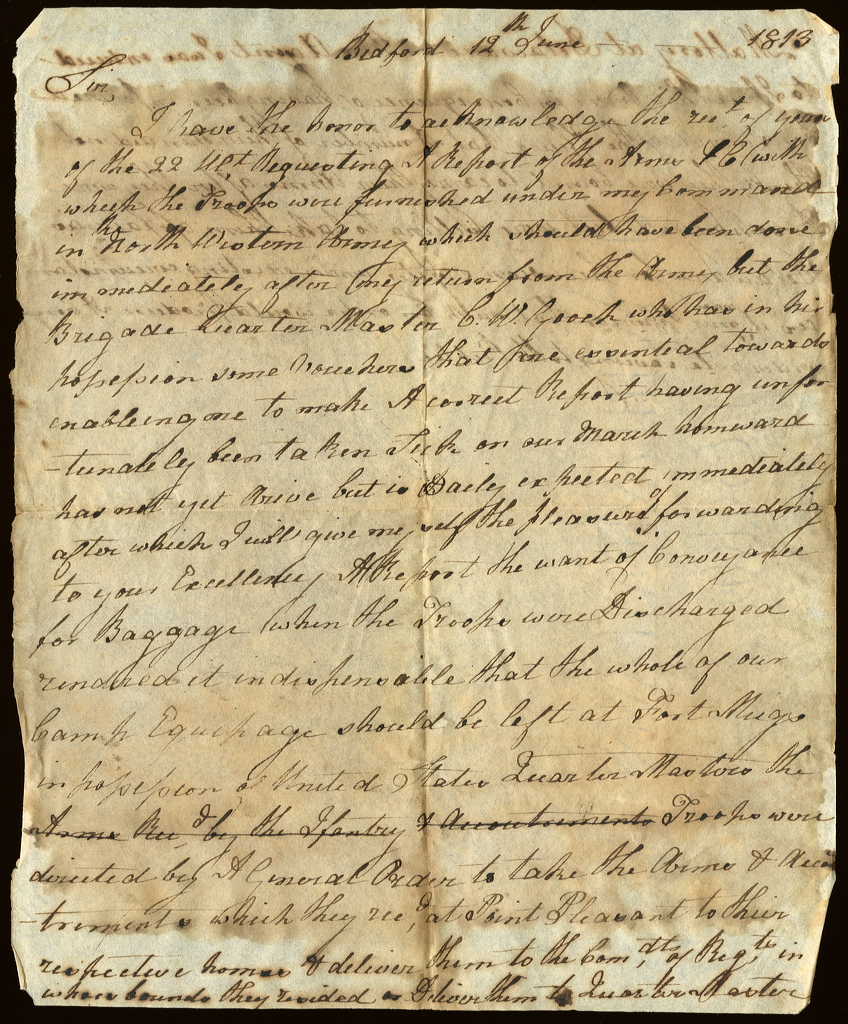 Bedford 12th June 1813
Sir
I have the honor to acknowledge the rect. of yours
of the 22 Ult. Requesting A Report of the Arms &C with
which the Troops were furnished under my Command
in th North Western Army which should have been done
immediately after my return from the Army but the
Brigade Quarter Master C. W. Gooch who has in his
possession some Vouchers that are essential towards
enableing me to make A correct Report having unfor
-tunately been taken Sick on our March homeward
has not yet Arive but is Daily expected immediately
after which I will give myself the pleasure of forwarding
to your Excellency A Report the want of Conveyance
for Baggage when the Troops were Discharged
rendred it indispensable that the whole of our
Camp Equipage should be left at Fort Migs
in possession of United States Quarter Masters the
Arms Recd. by the Ifantry & Accoutrements Troops were
directed by A General Order to take the Arms & Accou
-trements which they recd. at Point Pleasant to their
respective homes & deliver them to the Comdts. of Regts. in
whose bounds they resided or Deliver them to Quarter Master